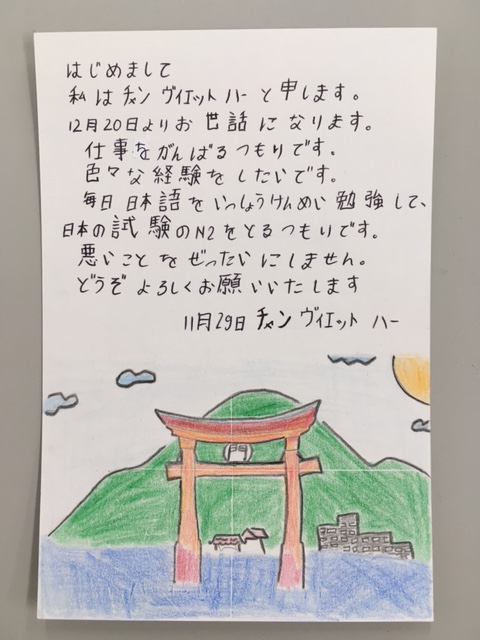 はじめまして
私はチャン ヴィエット ハーと申します。
12月20日よりお世話になります。
仕事をがんばるつもりです。
色々な経験をしたいです。
毎日日本語をいっしょうけんめい勉強して、
日本の試験のN2をとるつもりです。
悪いことをぜったいにしません。
どうぞよろしくお願いいたします
11月29日 チャン ヴィエット ハー
門